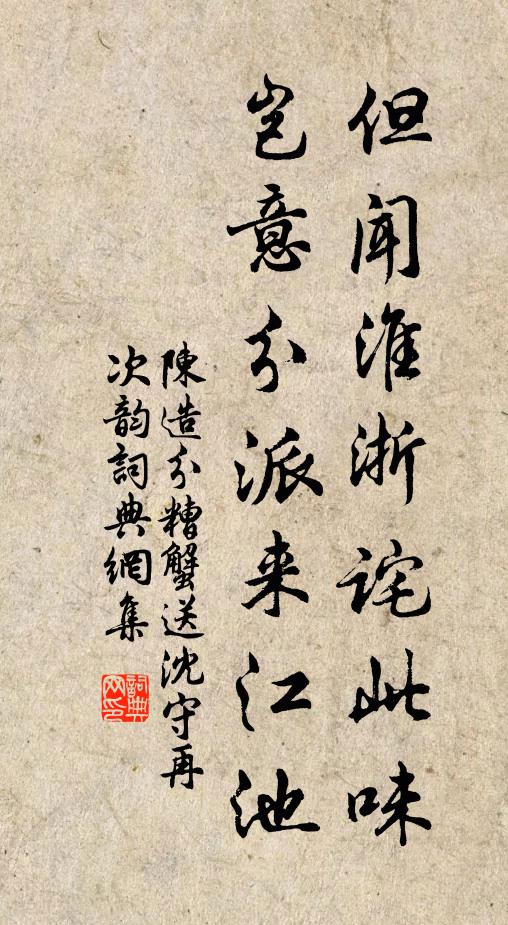 但闻淮浙诧此味
岂意分派来江池
陳造分糟蟹送沈守再
次韵詞典網集
詞典
网印